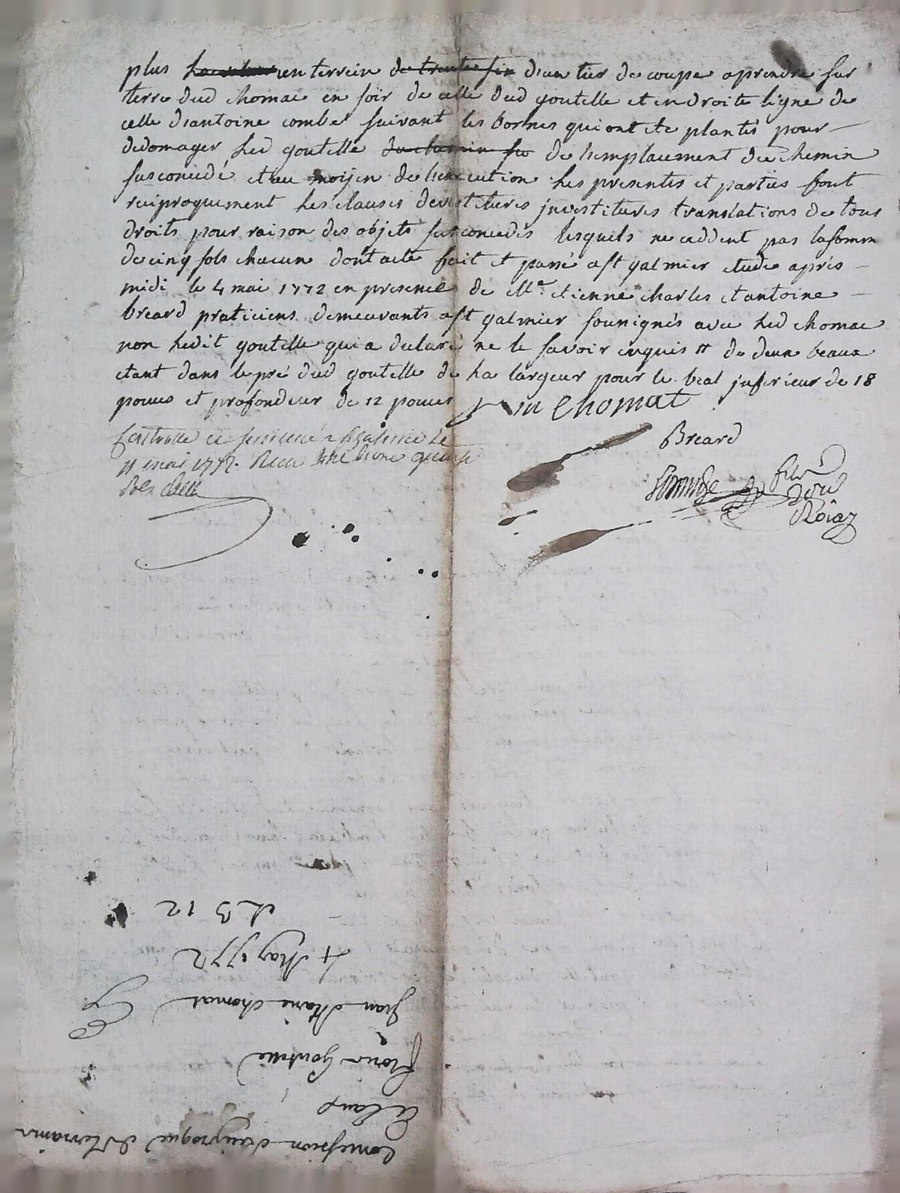 plus un terrein d'un tier de coupe a prendre sur
terre dud chomat en soir de celle dud goutelle et en droite ligne de
celle d'antoine combe suivant les bornes qui ont ete plantés pour
dedomager led goutelle de l'emplacement du chemin
susconcedé et au moyen de l'execution des presentes et parties font
reciproquement les clauses devestitures investitures translations de tous
droits pour raison des objets susconcedés lesquels ne cedent pas la somm
de cinq sols chacun dont acte fait et passé a st galmier etude après
midi le 4 mai 1772 en presence de Me. etienne charles et antoine
breard praticiens demeurants a st galmier sousignés avec led chomat
non ledit goutelle qui a declaré ne le savoir enquis de deux beaux
etant dans le pré dud goutelle de la largeur pour le beal inferieur de 18
pouces et profondeur de 12 pouces chomat
Breard
Controllé a st galmier le
11 mai 1772. Recu
Roiaz
Concession reciproque de terrains
Le Camp
goutelle
Jean Marie Chomat
4 May 1772